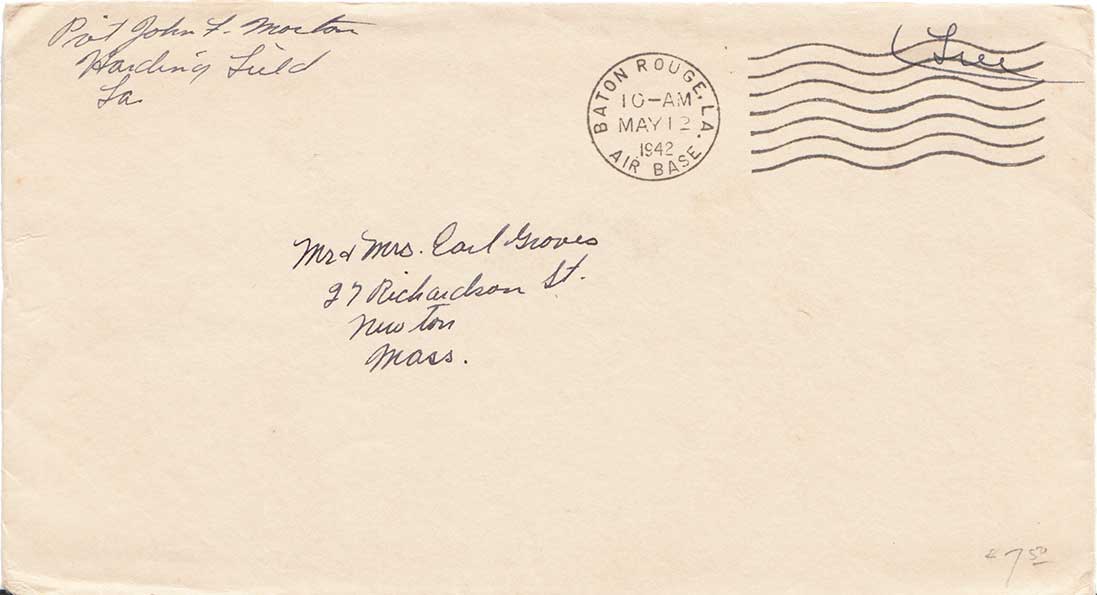 Pvt John F. Morton
Harding Field
La.
BATON ROUGE, LA.
10-AM
MAY 12
1942
AIR BASE
Free
Mr & Mrs. Earl Groves
27 Richardson St.
Newton
Mass.
7 50